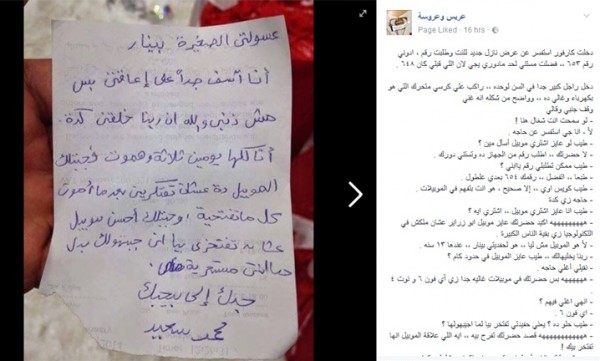 عسولتى الصغيرة بينار
أنا آسف جداً على إعاقتى بس
مش ذنبى والله ان ربنا خلقنى كدة.
أنا كلها يومين ثلاثة وهموت فجبتلك
الموبيل دة عشان تفتكرينى بعد ما أموت
كل ما تفتحيه، وجبتلك أحسن موبيل
عشان تفتخرى بيا إن جبتهولك بدل
ما انتى مستعرية منى.
جدك إلى بيحبك
محمد سعيد
عريس وعروسة
Page Liked · 16 hrs
دخلت كارفور استفسر عن عرض نازل جديد للنت وطلبت رقم ، ادوني
رقم ٦٥٣ .. فضلت مستني لحد مادوري يجي لان اللي قبلي كان ٦٤٨ .
دخل راجل كبير جدا في السن لوحده .. راكب علي كرسي متحرك اللي هو
بكهرباء وغالي ده .. وواضح من شكله انه غني
وقف جنبي وقالي
- لو سمحت انت شغال هنا !
ـ لا ، انا جي استفسر عن حاجه .
- طيب لو عايز اشتري موبيل أسأل مين ؟
ـ لا حضرتك ، اطلب رقم من الجهاز ده وتستني دورك .
- طيب ممكن تطلبلي رقم يابني ؟
ـ طبعا .. اتفضل .. رقمك ٦٥٤ بعدي علطول
- طيب كويس اوي .. إلا صحيح - هو انت بتفهم في الموبيلات
- حاجه زي كدة
- طيب انا عايز اشتري موبيل .. اشتري ايه ؟
- ههههههههه اكيد حضرتك عايز موبيل ابو زراير عشان ملكش في
التكنولوجيا زي بقية الناس الكبيرة .
- لأ هو الموبيل مش ليا .. هو لحفيدتي بينار .. عندها ١٣ سنه .
ـ ربنا يخليهالك .. طيب عايز الموبيل في حدود كام ؟
- نقيلي أغلي حاجه .
- ههههههههه بس حضرتك في موبيلات غاليه جدا زي أي فون ٦ و نوت ٤
.
- انهي اغلي فيهم ؟
- اي فون ٦ .
- طيب حلو ده ؟ يعني حفيدتي تفتخر بيا لما اجيبهولها ؟
- ههههههههه قصد حضرتك تفرح بيه .. ايه اللي علاقة الموبيل انها
تفتخر بيك !